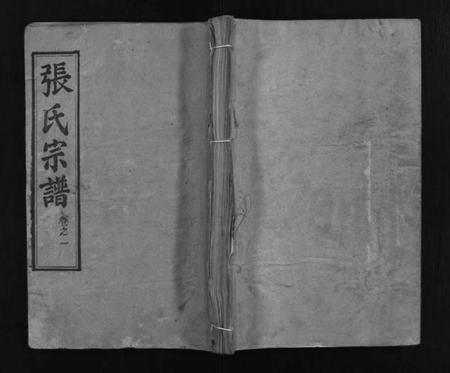 張氏宗譜
卷之一